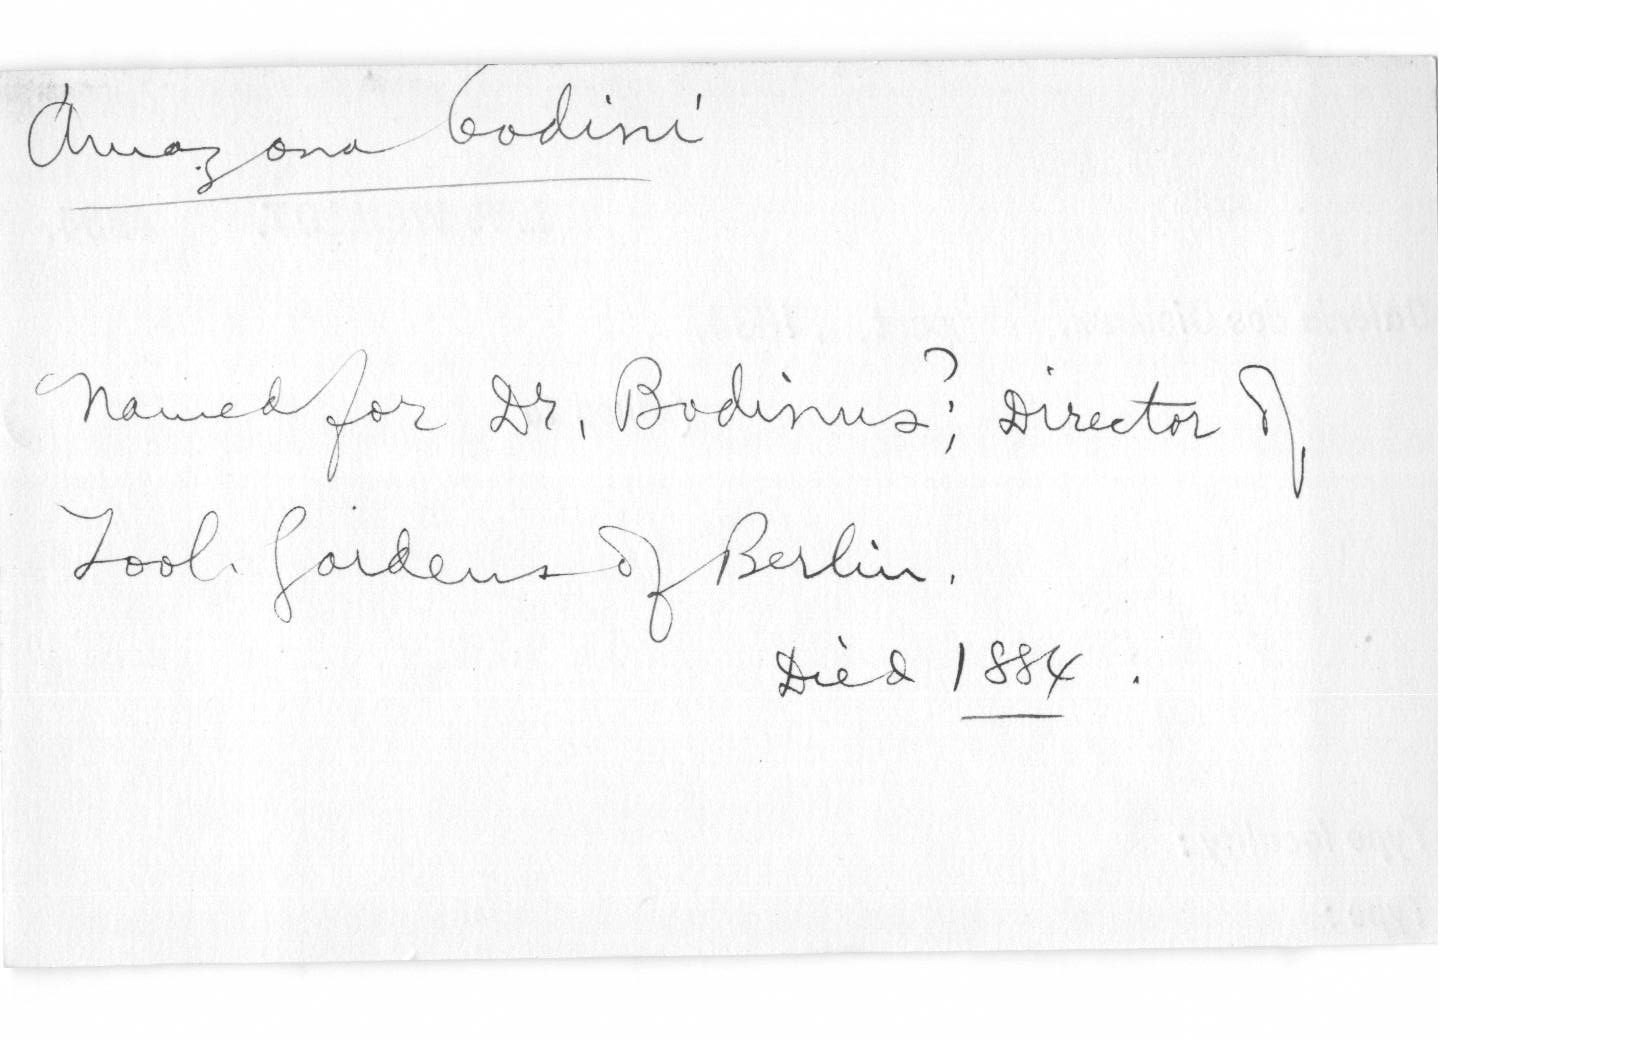 Amazona bodini
Named for Dr. Bodinus?; Director of
Zool. Gardens of Berlin.
Died 1884.